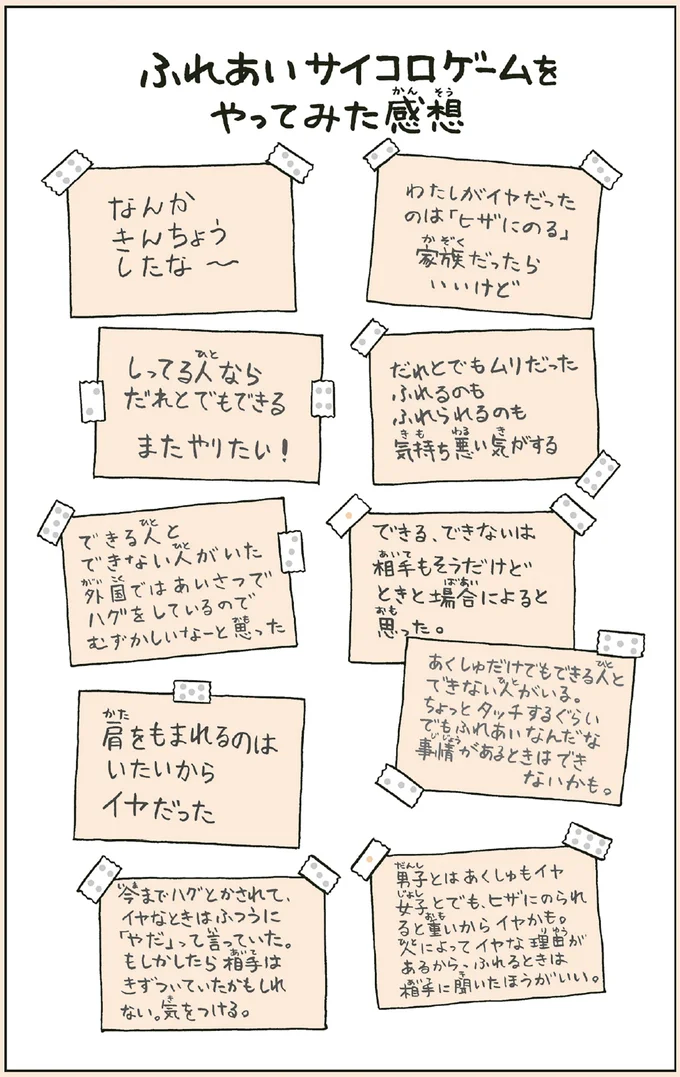 ふれあいサイコロゲームを
やってみた感想
なんか
きんちょう
したな〜
わたしがイヤだった
のは「ヒザにのる」
家族だったら
いいけど
しってる人なら
だれとでもできる
またやりたい！
だれとでもムリだった
ふれるのも
ふれられるのも
気持ち悪い気がする
できる人と
できない人がいた
外国ではあいさつで
ハグをしているので
むずかしいなーと思った
できる、できないは
相手もそうだけど
ときと場合によると
思った。
あくしゅだけでもできる人と
できない人がいる。
ちょっとタッチするぐらい
でもふれあいなんだな
事情があるときはでき
ないかも。
肩をもまれるのは
いたいから
イヤだった
今までハグとかされて、
イヤなときはふつうに
「やだ」って言っていた。
もしかしたら相手は
きずついていたかもしれ
ない。気をつける。
男子とはあくしゅもイヤ
女子とでも、ヒザにのられ
ると重いからイヤかも。
人によってイヤな理由が
あるから、ふれるときは
相手に聞いたほうがいい。